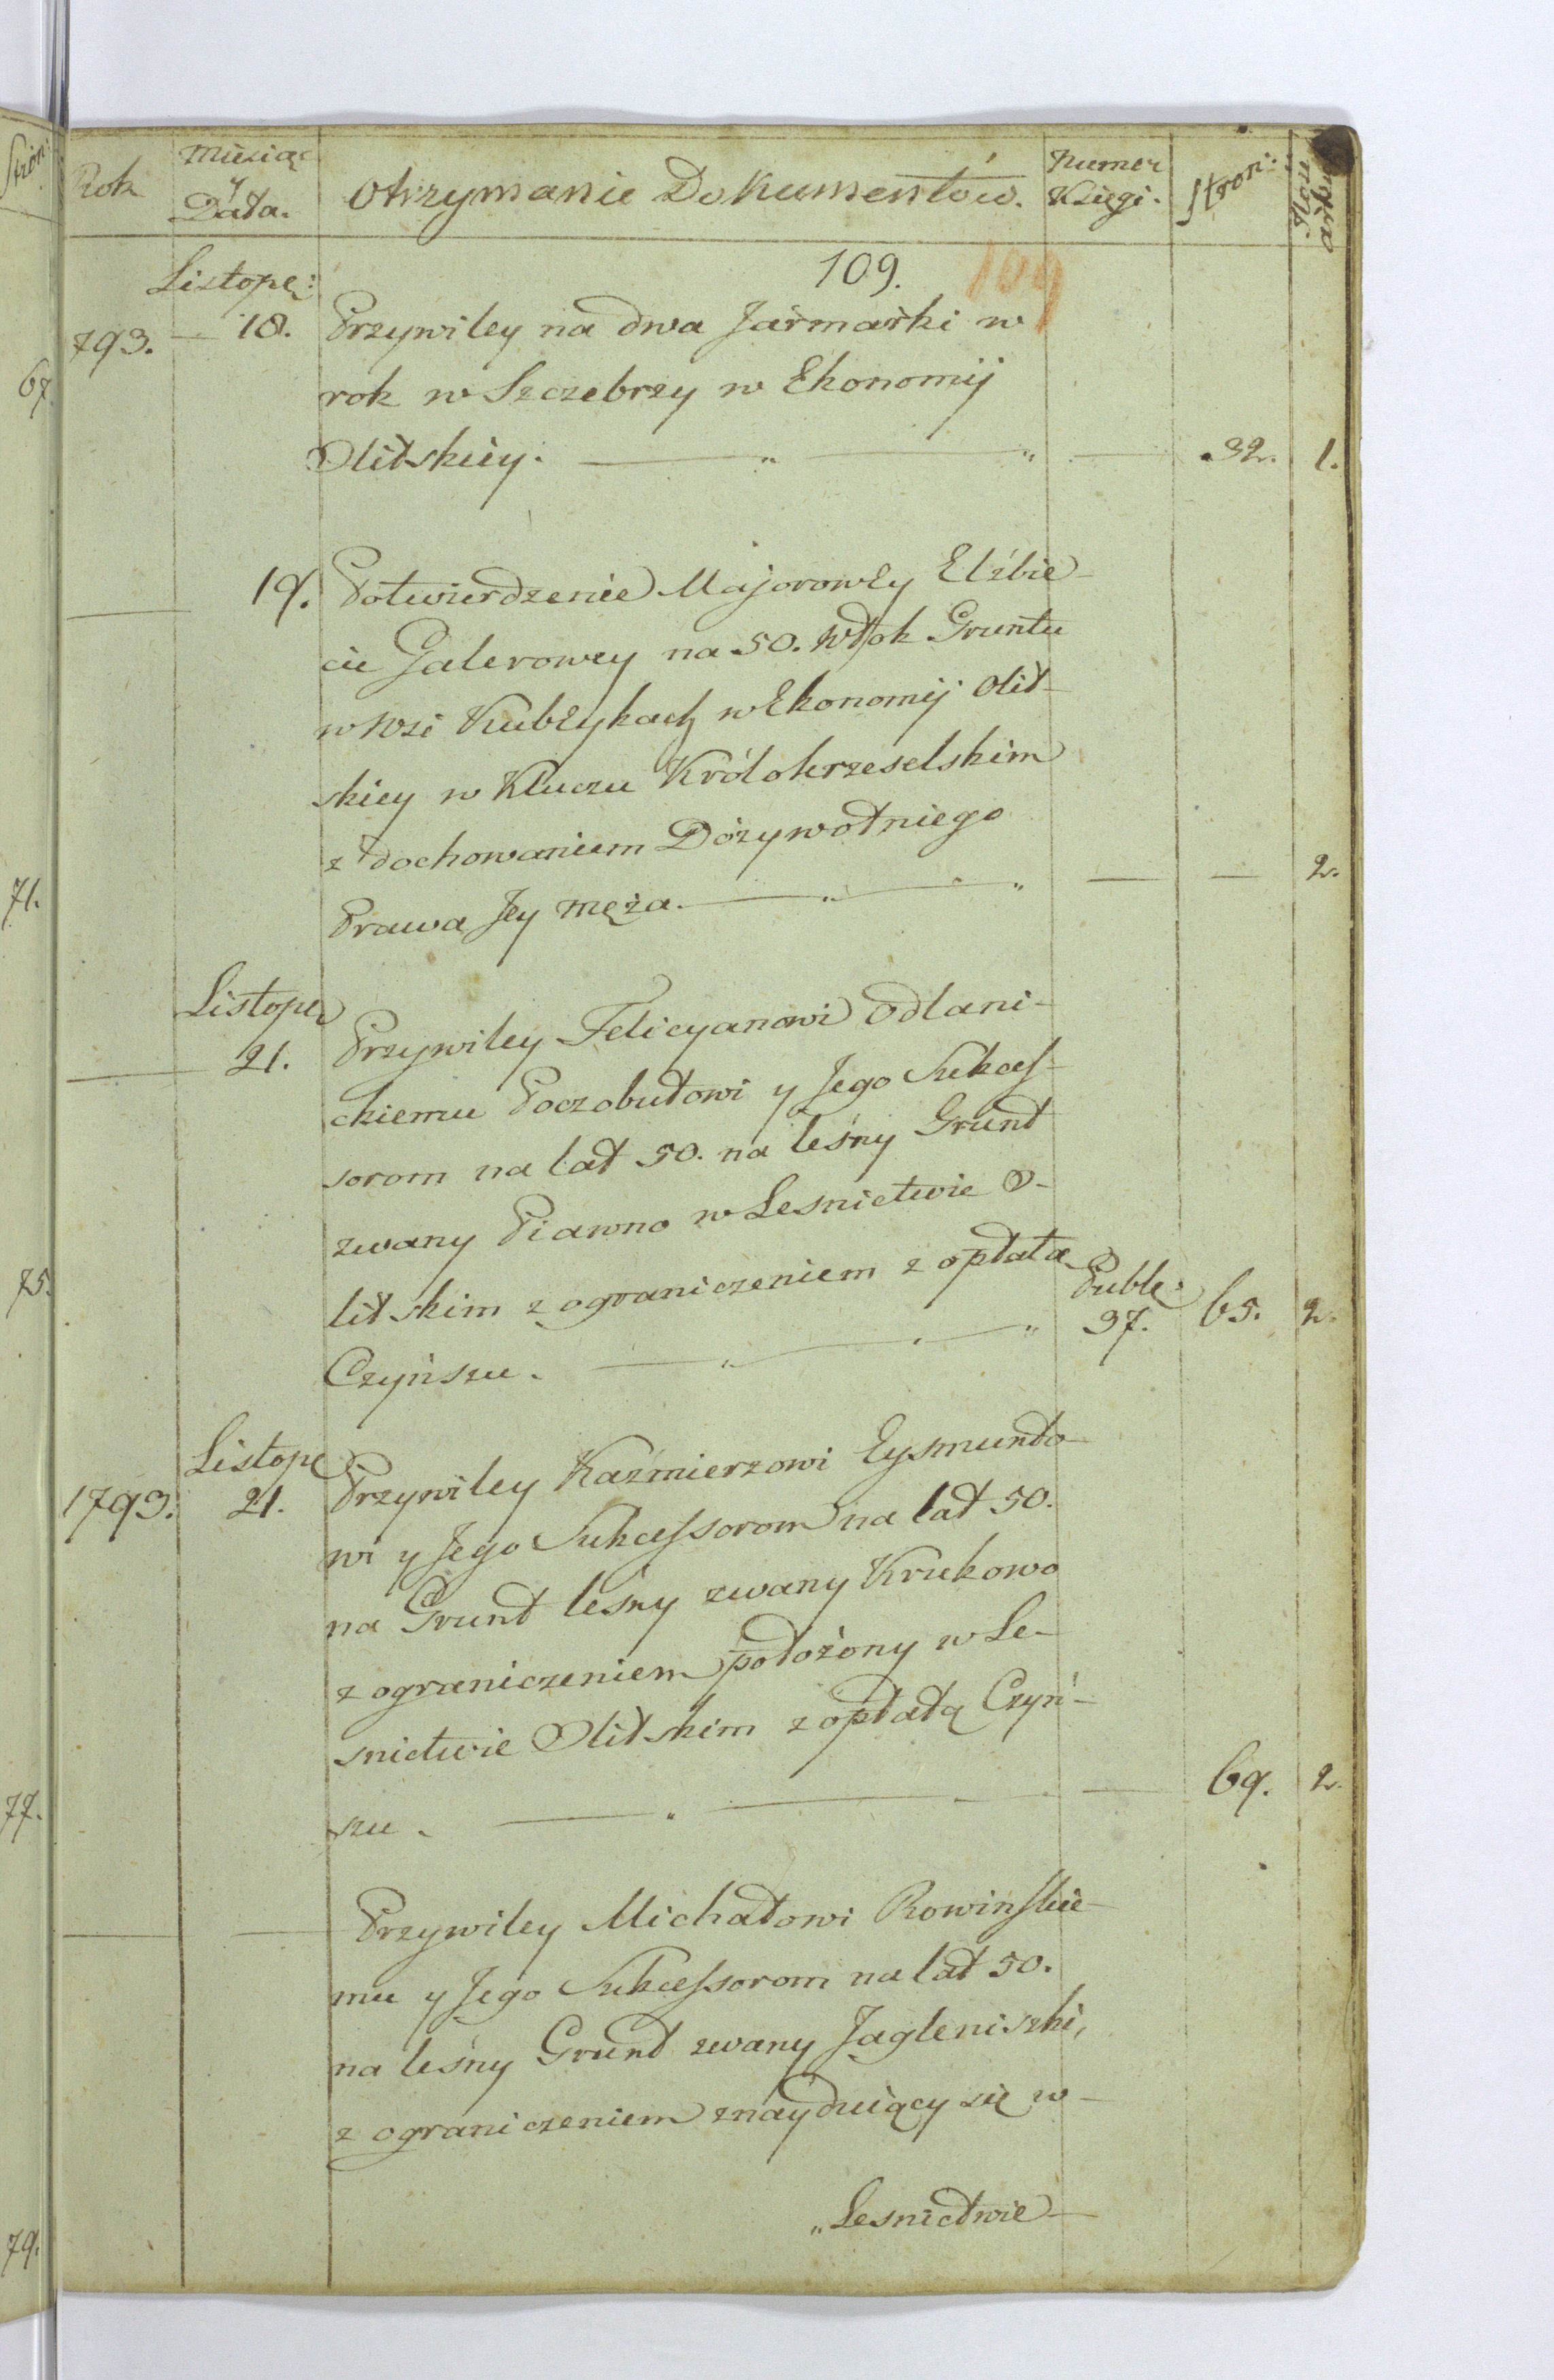 Rok Miesiąc y Data. Otrzymanie Dokumentów. Numer Księgi. Stron:
109. 109
Listope:
793. — 18. Przywiley na dwa Jarmarki w
rok w Szczebrzy w Ekonomij
Olitskiey. — " — " — 32. 1.
19. Potwierdzenie Majorowey Elżbie-
cie Galerowey na 50. Włok Gruntu
w Wsi Kublykach w Ekonomij Olit-
skiey w Kluczu Królokrzeselskim
z dochowaniem Dożywotniego
Prawa Jey Męża. — " — " — — 2.
Listope
21. Przywiley Felicyanowi Odlani-
ckiemu Poczobutowi y Jego Sukces-
sorom na lat 50. na leśny Grunt
zwany Piawno w Lesnictwie O-
litskim z ograniczeniem z opłatą
Czynszu. — " — " Puble: 37. 65. 2.
Listope
1793. 21. Przywiley Kaźmierzowi Eysmundo-
wi y Jego Sukcessorom na lat 50.
na Grunt leśny zwany Krukowo
z ograniczeniem położony w Le-
snictwie Olitskim z opłatą Czyn-
szu. — " — 69. 2.
Przywiley Michałowi Rowinskie-
mu y Jego Sukcessorom na lat 50.
na leśny Grunt zwany Jagleniszki,
z ograniczeniem znayduiący się w-
"Lesnictwie-
Stron:
67.
71.
75.
77.
79.